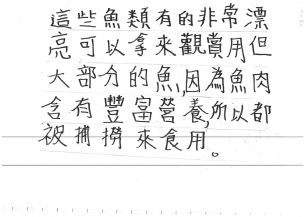 這些魚類有的非常漂
亮可以拿來觀賞用但
大部分的魚,因為魚肉
含有豐富營養,所以都
被捕撈來食用。